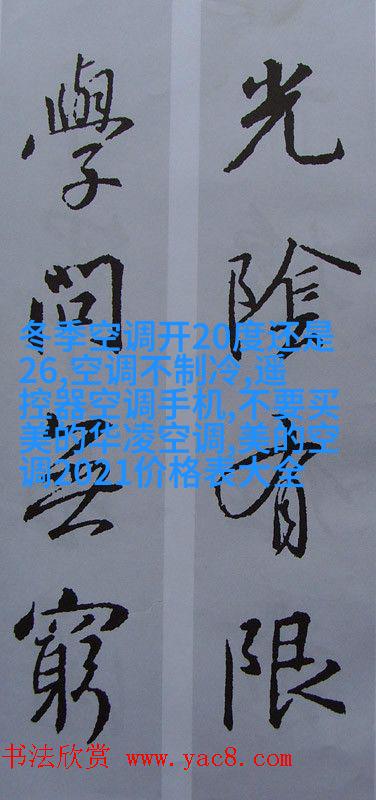 光陰有限
學問無窮
冬季空调开20度还是
26,空调不制冷,遥
控器空调手机,不要买
美的华凌空调,美的空
调2021价格表大全
书法欣赏 www.yac8.com